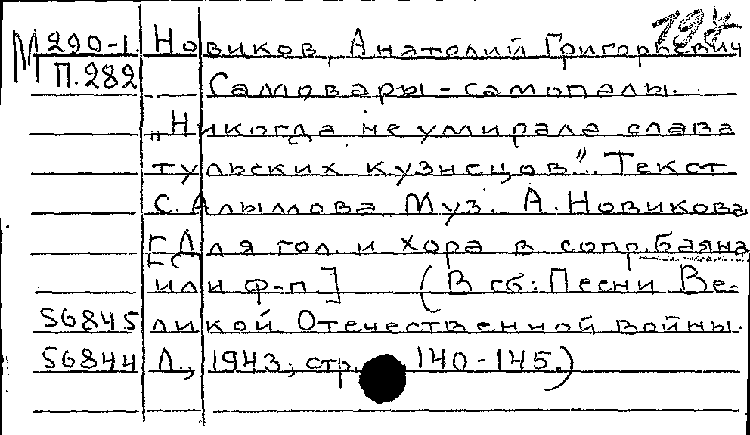 М 290-1 Новиков, Анатолий Григорьевич
П.282 Самовары-самопалы.
„Никогда не умирала слава
тульских кузнецов". Текст
С. Алымова Муз. А. Новикова
[Для гол. и хора в сопр. баяна
или ф-п] (В сб: Песни Ве-
56845 ликой Отечественной войны.
56844 Л., 1943, стр. 140-145.)